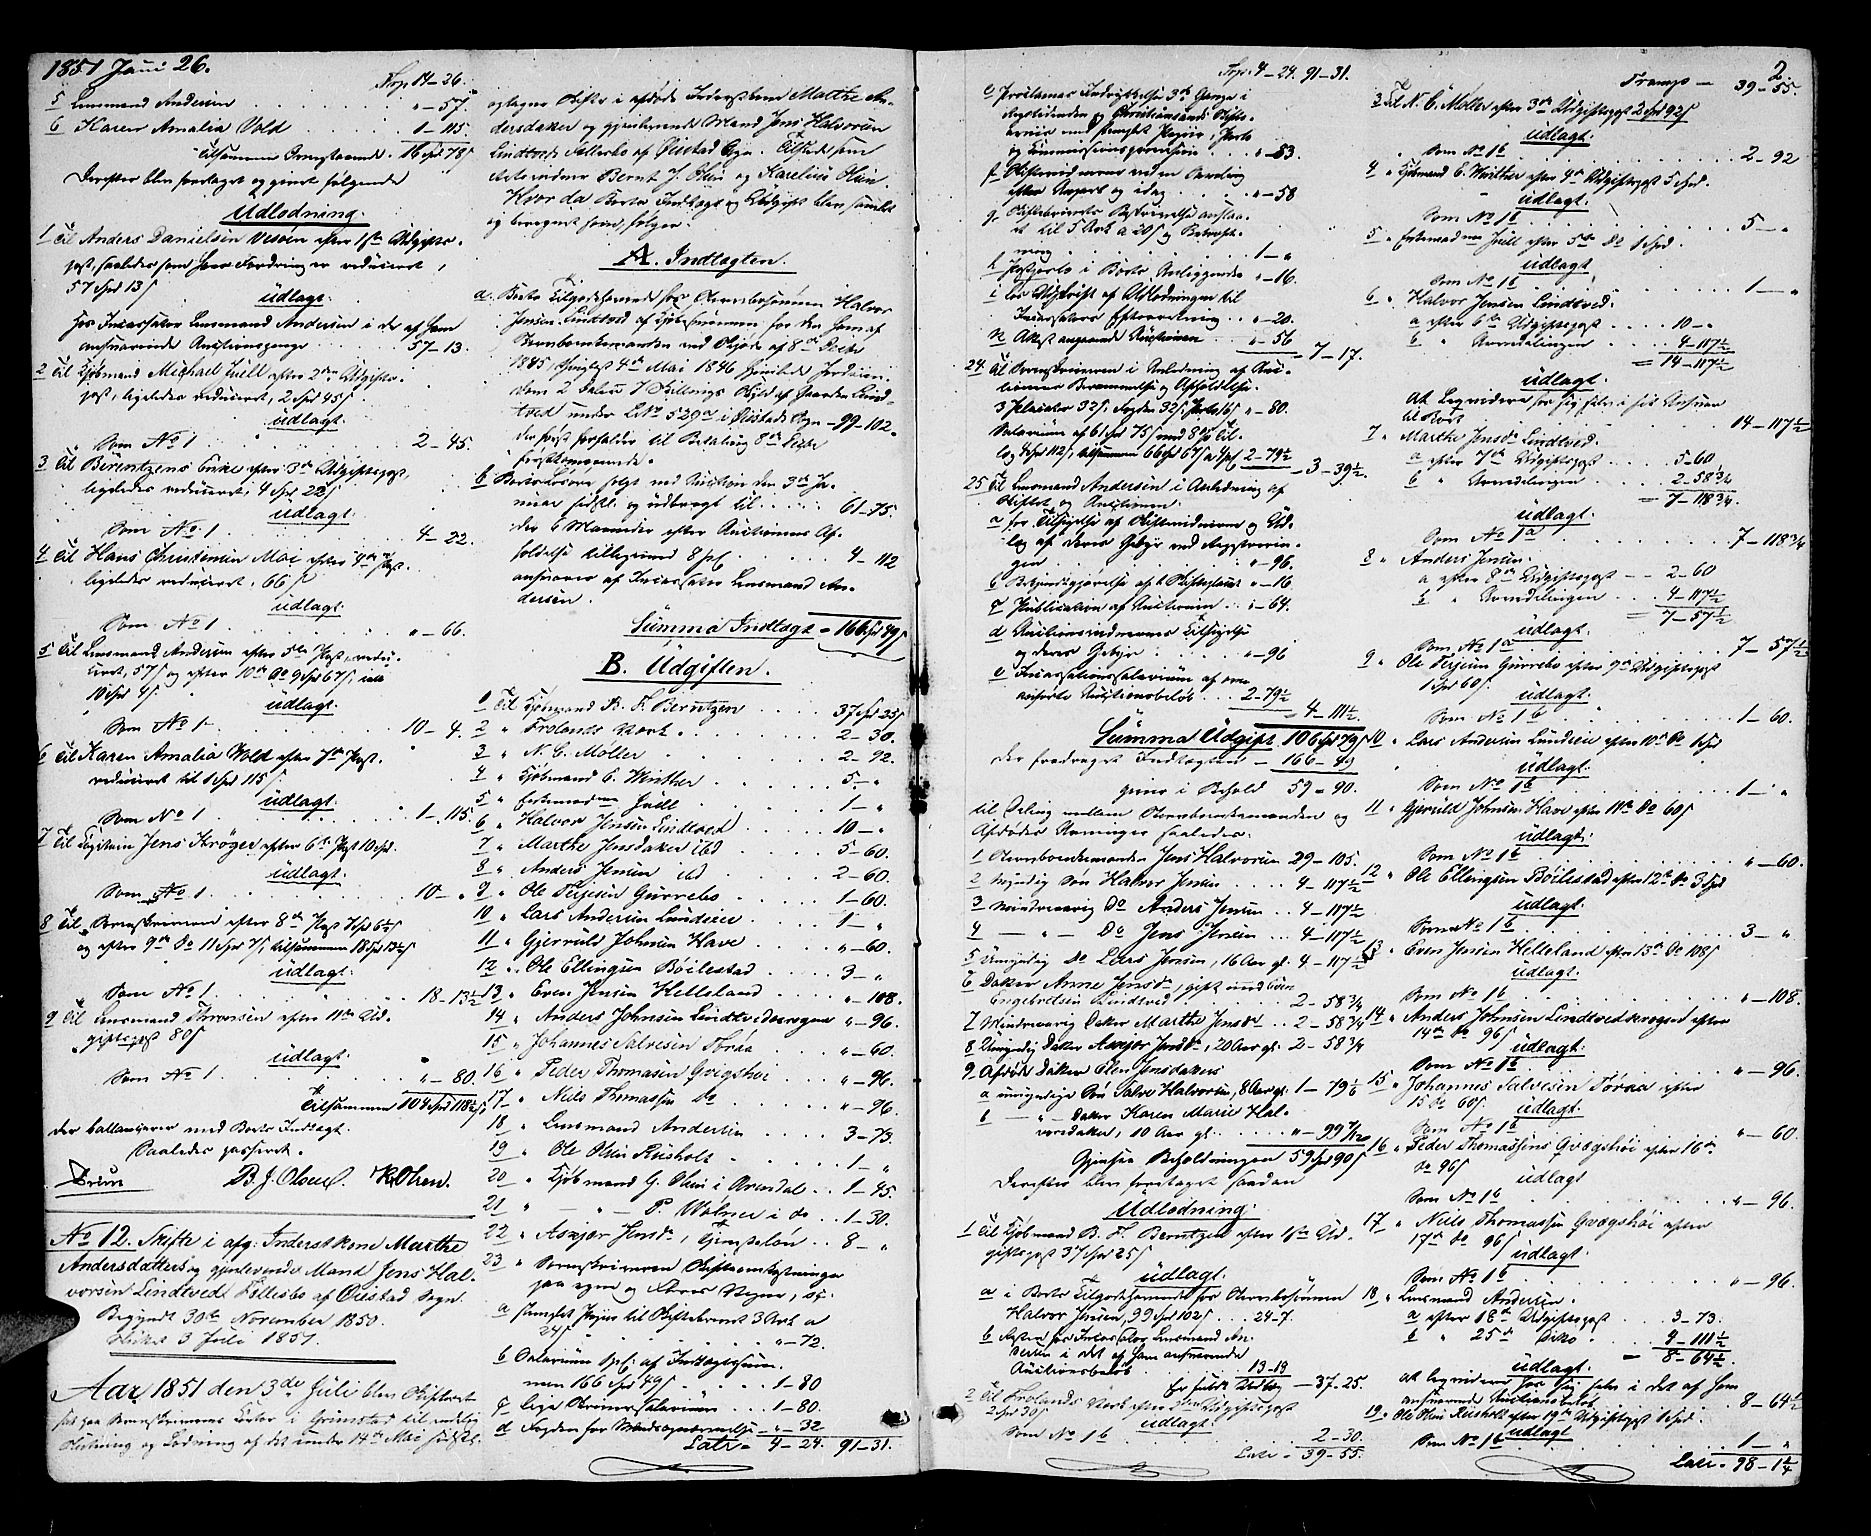 1851 Juni 26.
Trsp. 14-26.
5 Lensmand Andersen . . . „-57.
6 Karen Amalia Vold . . . 1-115.
Tilsammen Ovenstaaende . 16 Spd 78 ß
Derefter blev foretaget og givet følgende
Udlodning.
1 Til Anders Danielsen Vesøen efter 1ste Udgifts-
post, saaledes som hans Fordring er reduceret,
57 Spd 13 ß
udlagt.
Hos Incassator Lensmand Andersen i det af ham
ansvarende Auctionspenge . . . 57-13.
2 Til Kjøbmand Michael Juell efter 2den Udgifts-
post, ligeledes reduceret, 2 Spd 45 ß
udlagt.
Som No 1 . . . 2-45.
3 Til Bérentzens Enke efter 3die Udgiftspost,
ligeledes reduceret, 4 Spd 22 ß
udlagt.
Som No 1 . . . 4-22.
4 Til Hans Christensen Moi efter 4de Post.
ligeledes reduceret, 66 ß
udlagt.
Som No 1 . . . „-66.
5 Til Lensmand Andersen efter 5te Post, redu-
ceret, 57 ß og efter 10de Do 9 Spd 67 ß, ialt
10 Spd 4 ß
udlagt.
Som No 1 . . . 10-4.
6 Til Karen Amalia Vold efter 7de Post.
reduceret til 1 Spd 115 ß
udlagt.
Som No 1 . . . 1-115.
7 Til Capitain Jens Krøger efter 6te Post 10 Spd.
udlagt.
Som No 1 . . . 10-„
8 Til Sorenskriveren efter 8de Post 7 Spd 6½ ß
og efter 9de Do 11 Spd 7 ß, tilsammen 18 Spd 13½ ß
udlagt.
Som No 1 . . . 18-13½
9 Til Lensmand Thronsen efter 11te Ud-
giftspost 80 ß
udlagt.
Som No 1 . . . „-80.
Tilsammen 104 Spd 118½ ß.
der ballancerer med Boets Indtægt.
Saaledes passeret.
B. J. Olsen. K Olsen.
No 12. Skifte i afg. Inderstkone Marthe
Andersdatters og gjenlevende Mand Jens Hal-
vorsen Lindtvedt Fællesbo af Øiestad Sogn.
Begyndt 30te November 1850.
Sluttet 3 Juli 1851.
Aar 1851 den 3de Juli blev Skifteret
sat paa Sorenskriverens Contor i Grimstad til endelig
Slutning og Lodning af det under 14de Mai sidstl.
optagne Skifte i afdøde Inderstkone Marthe An-
dersdatter og gjenlevende Mand Jens Halvorsen
Lindtveds Fællesbo af Øiestad Sogn. Tilstede som
Retsvidner Bernt J. Olsen og Karelius Olsen.
Hvorda Boets Indtægt og Udgift blev samlet
og beregnet som følger.
A. Indtægten.
a. Boets Tilgodehavende hos Stervbosønnen Halvor
Jensen Lindtved af Kjøbesummen for den ham af
Stervboenkemanden ved Skjøde af 8de Octbr
1845, thinglæst 4de Mai 1846 hjemlede Jordeien-
dom 2 Daler 1 Skillings Skyld af Gaarden Lind-
tved under LNo 529a i Øiestads Sogn - 99-102.
der først forfalder til Betaling 8de Octbr
førstkommende.
b Boets Løsøre solgt ved Auction den 3die Ja-
nuar sidstl. og udbragt til . . . 61-75.
der 6 Maaneder efter Auctionens Af-
holdelse tillægges med 8 pC. . . . 4-112
ansvares af Incassator Lensmand An-
dersen.
Summa Indtægt - 166 Spd 49 ß
B. Udgiften.
1 Til Kjøbmand B. F. Berntzen . . . 37 Spd 25 ß
2 „ Frolands Værk . . . 2-30.
3 „ N. C. Møller . . . 2-92.
4 „ Kjøbmand C. Winther . . . 5-„
5 „ Juell . . . 1-„
6 „ Halvor Jensen Lindtved . . . 10-„
7 „ Marthe Jensdatter ibd . . . 5-60.
8 „ Anders Jensen ibd . . . 2-60.
9 „ Ole Terjesen Gurrebo . . . 1-60.
10 „ Lars Andersen Lundeier . . . 1-„
11 „ Gjerruld Johnsen Have . . . „-60.
12 „ Ole Ellingsen Bøilestad . . . 3-„
13 „ Even Jensen Helleland . . . „-108.
14 „ Anders Johnsen Lindtvedskrogen „-96.
15 „ Johannes Salvesen Toraa . . . „-60.
16 „ Peder Thomasen Gvigshei . . . „-96.
17 „ Niels Thomassen Do . . . „-96.
18 „ Lensmand Andersen . . . 3-73.
19 „ Ole Olsen Riisholt . . . 1-„
20 „ Kjøbmand G. Olsen i Arendal . . 1-45
21 „ - „ - P. Wølner i do . . 1-30.
22 „ Aszjer Jensdr, Tjenesteløn . . 8-„
23 „ Sorenskriveren Skifteomkostninger
paa egne og Andres Vegne, sc:
a stemplet Papir til Skiftebrevet 3 Ark a
24 ß . . . „-72.
b Salarium 1 pC. af Indtægtssum-
men 166 Spd 49 ß . . . 1-80
c lige Skriversalarium . . . 1-80.
d Fogden for Værdsagnævnelse „-32
Lats - 4-24. 91-31.
Trsp. 4-24. 91-31.
e Proclamas Indrykkelse 3de Gange i
Rigstidenden og Christiansands Stifts-
avis med stemplet Papir, Porto
og Commissionsprovision . . . „-83.
f Skiftevidnerne ved en Samling
efter Rapport og idag . . . „-58
g Skiftebrevets Beskrivelse ansaa-
et til 5 Ark a 20 ß og Bekræft-
ning . . . 1-„
h Postporto i Boets Anliggende „-16.
i for Udskrift af Udlodningen til
Incassators Efterretning . . „-20.
k Attest angaaende Auctionen . . „-56
7-17.
24. Til Sorenskriveren i Anledning af Auc-
tionens Berammelse og Afholdelse.
3 Plakater 32 ß. Fogden 32 ß. Porto 16 ß „-80.
Salarium af 61 Spd 75 ß med 8 pC Til-
læg 4 Spd 112 ß, tilsammen 66 Spd 67 ß a 4 pC 2-79½
3-39½.
25 Til Lensmand Andersen i Anledning af
Skiftet og Auctionen.
a for Tilsigelse af Skiftevidnerne og Ud-
læg af deres Gebyr ved Registrerin-
gen . . . „-96.
b Bekjendtgjørelse af Skiftesamt „-16
c Publication af Auctionen . . „-64.
d Auctionsvidnernes Tilsigelse
og deres Gebyr . . . „-96
e Incassationssalarium af oven-
anførte Auctionsbeløb . . 2-79½
4-111½.
Summa Udgift 106 Spd 79 ß
der fradraget Indtægten - 166-49
giver i Behold 59-90.
til Deling mellem Stervboenkemanden og
Afdødes Arvinger saaledes:
1 Stervboenkemanden Jens Halvorsen 29-105.
2 Myndig Søn Halvor Jensen . . . . 4-117½
3 Mindreaarig Do Anders Jensen . . 4-117½
4 - „ - Do Jens Jensen . . 4-117½
5 Umyndig Do Lars Jensen, 16 Aar gl. 4-117½
6 Datter Anne Jensdr, gift med Even
Engebretsen Lindtved . . . 2-58¾
7 Mindreaarig Datter Marthe Jensdr . . 2-58¾
8 Umyndig Datter Aszjer Jensdr, 20 Aar gl. 2-58¾
9 Afdøde Datter Elen Jensdatters
a umyndige Søn Salve Halvorsen, 8 Aar gl. 1-79⅙
b - „ - Datter Karen Marie Hal-
vorsdatter, 10 Aar gl. . . . „-99 7/12
Gjensees Beholdningen 59 Spd 90 ß
Derefter blev foretaget saadan
Udlodning.
1 Til Kjøbmand B. F. Berntzen efter 1ste Ud-
giftspost 37 Spd 25 ß
udlagt.
a i Boets Tilgodehavende hos Stervbosønnen
Halvor Jensen, 99 Spd 102 ß . . . 24-7.
b Resten hos Incassator Lensmand An-
dersen i det af ham ansvarende
Auctionsbeløb . . . 13-18
Er fuldt Udlæg - 37-25.
2 Til Frolands Værk efter 2den Udgiftspost
2 Spd 30 ß
udlagt.
Som No 1 b . . . 2-30.
Lats - 39-55.
2.
Transp - 39-55.
3 Til N. C. Møller efter 3die Udgiftspost 2 Spd 92 ß
udlagt.
Som No 1 b . . . 2-92
4 „ Kjøbmand C. Winther efter 4de Udgiftspost 5 Spd.
udlagt.
Som No 1 b . . . 5-„
5 „ Juell efter 5te Do 1 Spd.
udlagt
Som No 1 b . . . 1-„
6 „ Halvor Jensen Lindtved.
a efter 6te Udgiftspost . . . . 10-„
b „ Arvedelingen . . . 4-117½
= 14-117½
udlagt.
At liqvidere hos sig selv i sit Ansvar
til Boet . . . 14-117½
7 „ Marthe Jensdr Lindtved.
a efter 7de Udgiftspost . . . 5-60
b „ Arvedelingen . . . 2-58¾
= 7-118¾.
udlagt.
Som No 1a . . . 7-118¾
8 „ Anders Jensen
a efter 8de Udgiftspost . . . 2-60
b „ Arvedelingen . . . 4-117½
= 7-57½
udlagt.
Som No 1a . . . 7-57½
9 „ Ole Terjesen Gurrebo efter 9de Udgiftspost
1 Spd 60 ß.
udlagt.
Som No 1 b . . . 1-60.
10 „ Lars Andersen Lundeier efter 10de Do 1 Spd
udlagt.
Som No 1 b . . . 1-„
11 „ Gjeruld Johnsen Have efter 11te Do 60 ß
udlagt.
Som No 1 b . . . „-60.
12 „ Ole Ellingsen Bøilestad efter 12te Do 3 Spd
udlagt.
Som No 1 b . . . 3-„
13 „ Even Jensen Helleland efter 13de Do 108 ß
udlagt.
Som No 1 b . . . „-108.
14 „ Anders Johnsen Lindtvedskrogen efter
14de Do 96 ß
udlagt.
Som No 1 b . . . „-96.
15 „ Johannes Salvesen Toraa efter
15 Do 60 ß
udlagt.
Som No 1 b . . . „-60.
16 „ Peder Thomassens Gvægshei efter 16de
Do 96 ß
udlagt
Som No 1 b . . . „-96.
17 „ Niels Thomassen Gvægshei efter
17de Do 96 ß
udlagt.
Som No 1 b . . . „-96.
18 „ Lensmand Andersen.
a efter 18de Udgiftspost . . . 3-73.
b „ 25de Dito . . . 4-111½
= 8-64½.
udlagt.
at liqvidere hos sig selv i det af ham
ansvarende Auctionsbeløb . . . 8-64½
19 „ Ole Olsen Riisholt efter 19de Udgiftspost 1 Spd.
udlagt
Som No 1 b . . . 1-„
Lats - 98-1¼